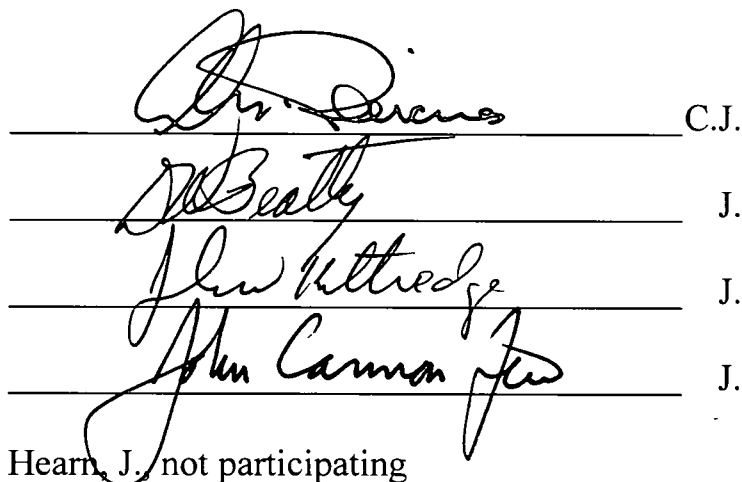 C.J.
Beatty J.
John Kittredge J.
John Cannon Few J.
Hearn, J., not participating